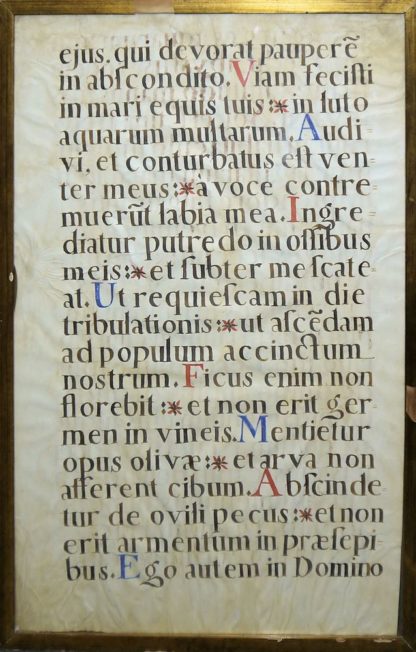 ejus. qui devorat pauperē
in abſcondito. Viam feciſti
in mari equis tuis :* in luto
aquarum multarum. Audi-
vi, et conturbatus eſt ven-
ter meus :* à voce contre-
muerūt labia mea. Ingre-
diatur putredo in oſſibus
meis :* et ſubter me ſcate-
at. Ut requieſcam in die
tribulationis :* ut aſcēdam
ad populum accinctum
nostrum. Ficus enim non
florebit :* et non erit ger-
men in vineis. Mentietur
opus olivæ :* et arva non
afferent cibum. Abſcinde-
tur de ovili pecus :* et non
erit armentum in præſepi-
bus. Ego autem in Domino